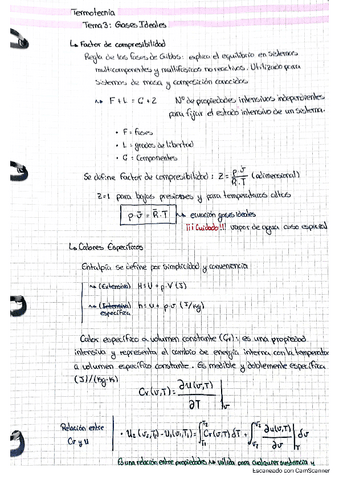 Termotecnia
Tema 3: Gases Ideales
↳ Factor de compresibilidad
Regla de las fases de Gibbs: explica el equilibrio en sistemas
multicomponentes y multifásicos no reactivos. Utilizado para
sistemas de masa y composición conocidos
F + L = C + 2 Nº de propiedades intensivas independientes
para fijar el estado intensivo de un sistema.
• F = fases
• L = grados de libertad
• C = Componentes
Se define factor de compresibilidad: Z = p·v / R·T (adimensional)
Z=1 para bajas presiones y para temperaturas altas
p·v = R·T → ecuación gases ideales
¡¡¡Cuidado!!! vapor de agua caso especial
↳ Calores Específicos
Entalpía se define por simplicidad y conveniencia
→ (Extensiva) H = U + p·V (J)
→ (Intensiva) h = u + p·v (J/kg)
específica
Calor específico a volumen constante (Cv): es una propiedad
intensiva y representa el cambio de energía interna con la temperatura
a volumen específico constante. Es medible y doblemente específica
(J)/(kg·K)
Cv(v,T) = ∂u(v,T) / ∂T |v
Relación entre
Cv y u
• U2 (v2,T2) - U1(v1,T1) = ∫T1T2 Cv(v,T) dT + ∫v1v2 ∂u(v,T) / ∂v
Es una relación entre propiedades → válida para cualquier sustancia y
Escaneado con CamScanner